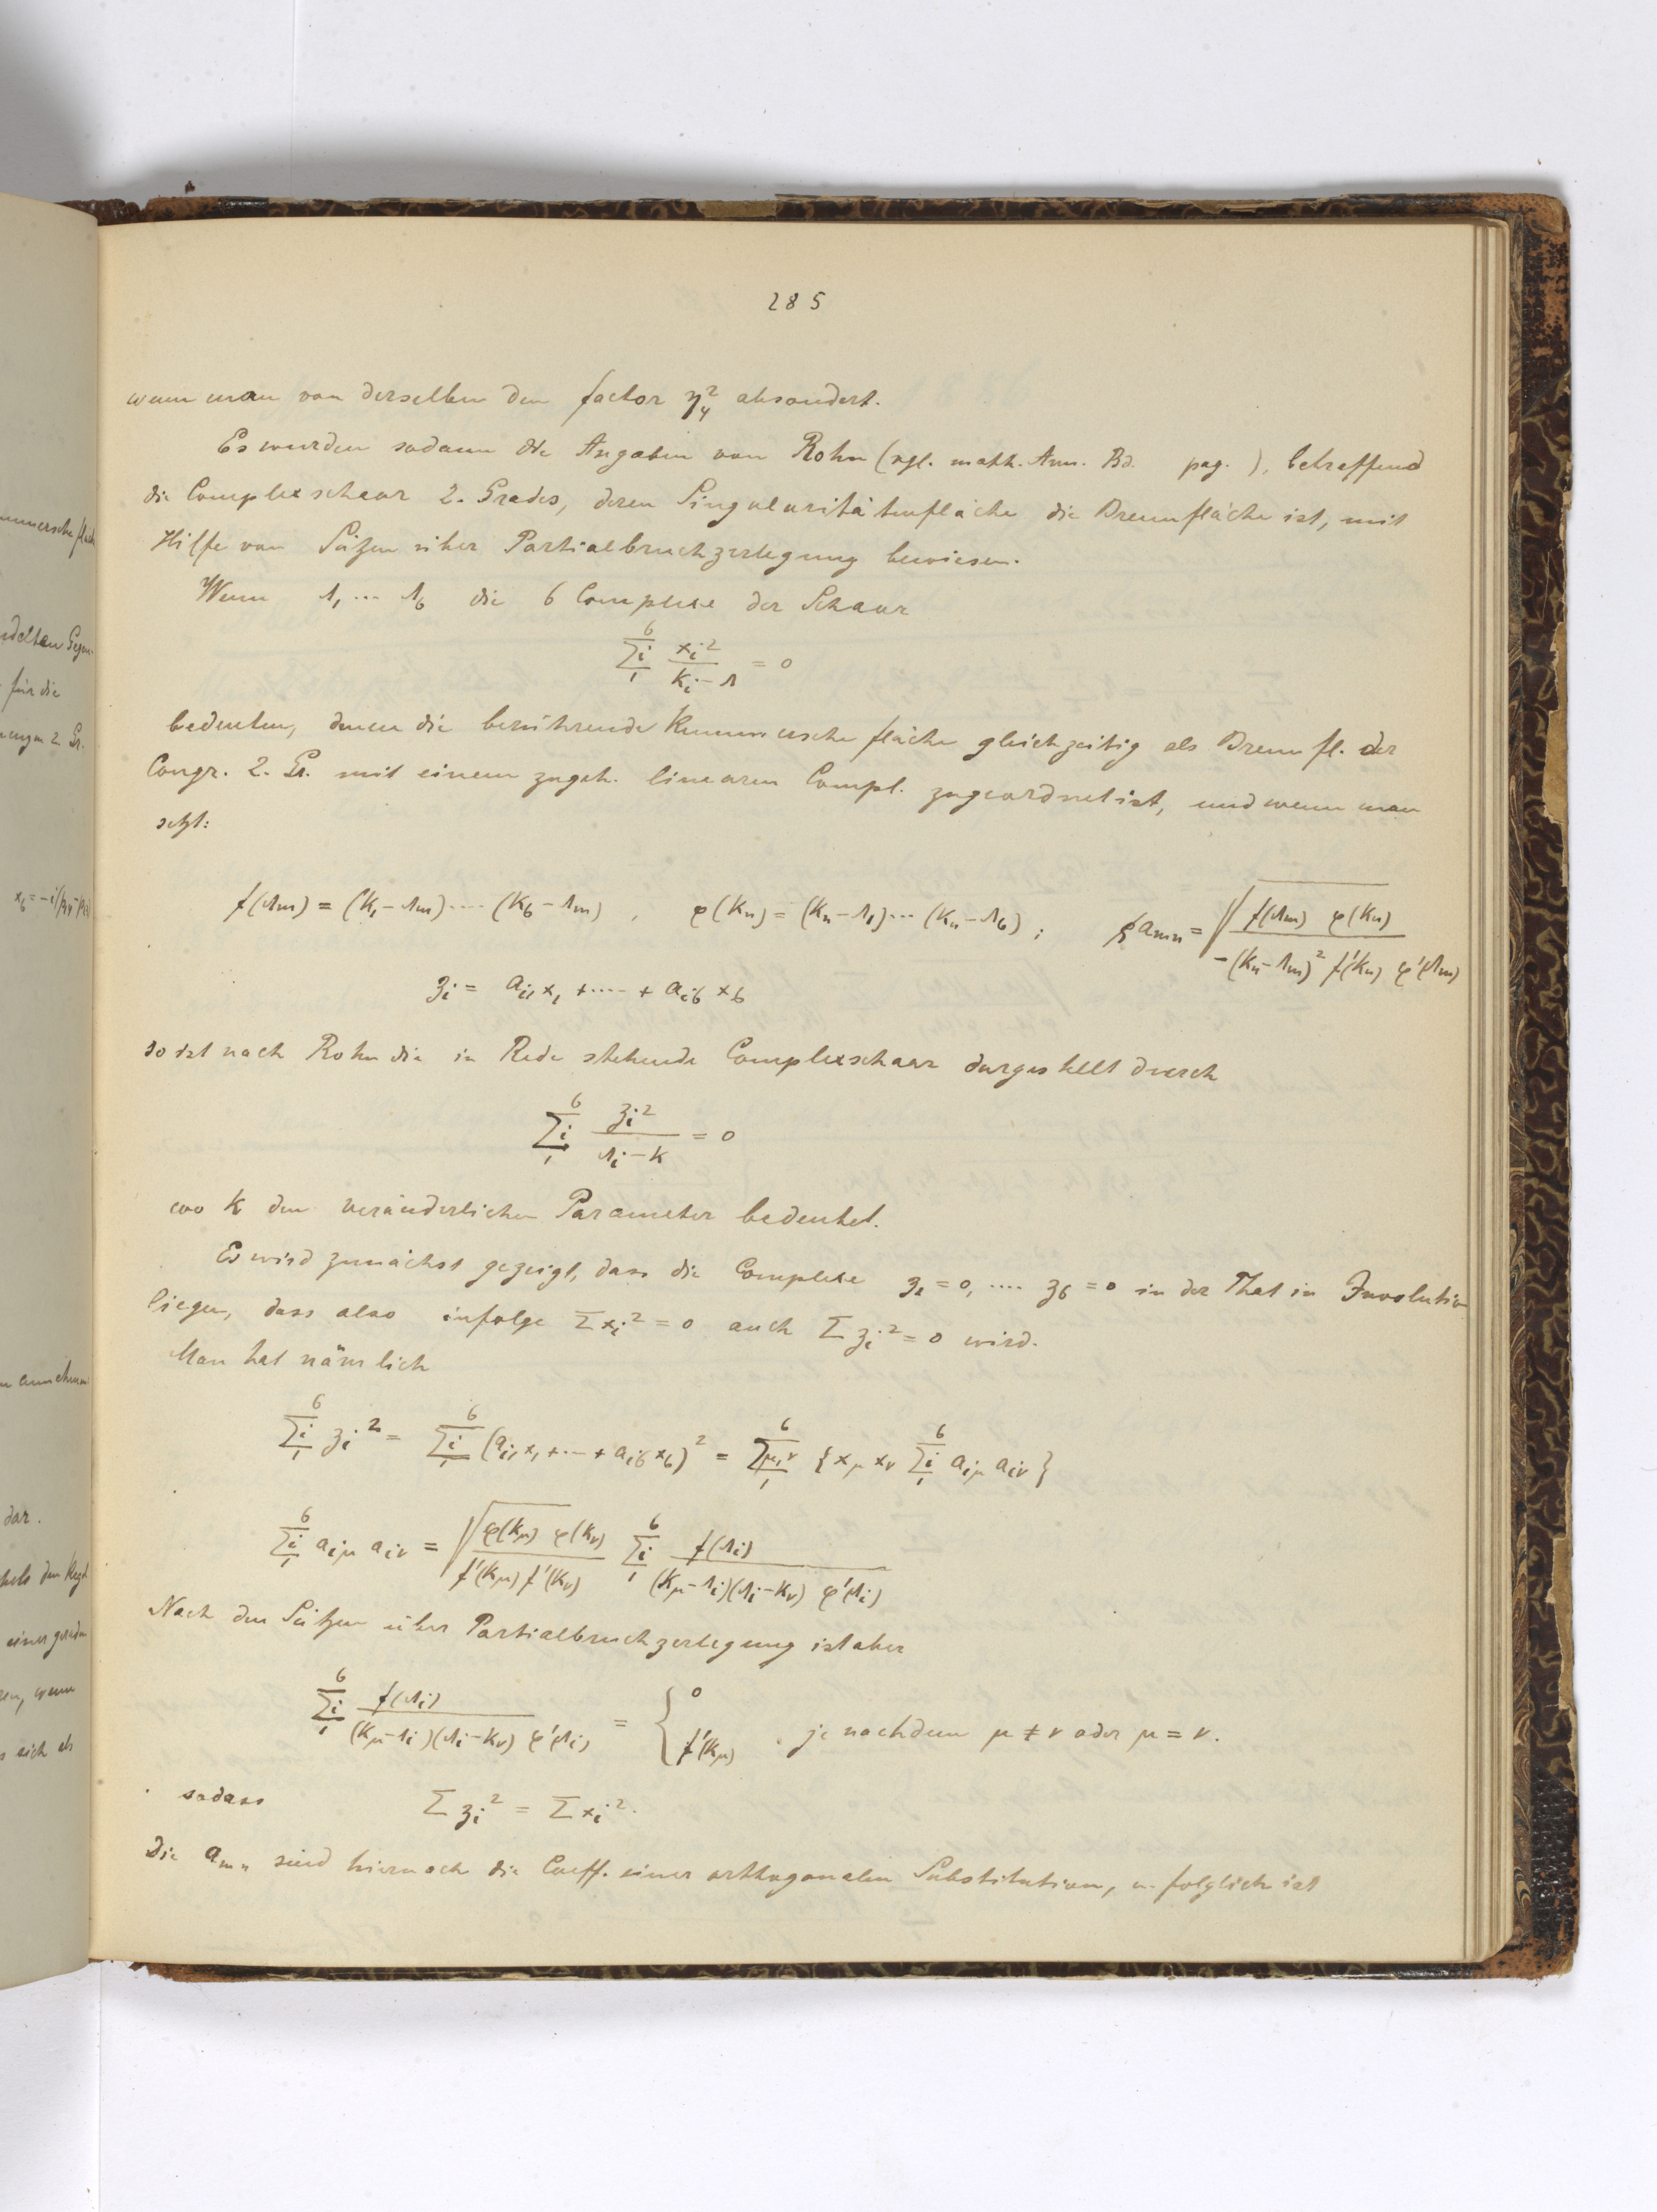 285
wenn man von derselben den factor η₄² absondert.
Es wurden sodann die Angaben von Rohn (vgl. math. Ann. Bd. pag. ), betreffend
die Complexschaar 2. Grades, deren Singularitätenfläche die Brennfläche ist, mit
Hilfe von Sätzen über Partialbruchzerlegung bewiesen.
Wenn λ₁ ... λ₆ die 6 Complexe der Schaar
∑ᵢ₌₁⁶ xᵢ²/(kᵢ-λ) = 0
bedeuten, denen die berührende Kummersche fläche gleichzeitig als Brennfl. der
Congr. 2. Gr. mit einem zugeh. linearen Compl. zugeordnet ist, und wenn man
setzt:
f(λm) = (k₁-λm)....(k₆-λm) , φ(kn) = (kn-λ₁)...(kn-λ₆) ; ρ amn = √(f(λm) φ(kn) / -(kn-λm)² f'(kn) φ'(λm))
zᵢ = aᵢ₁x₁ +....+ aᵢ₆x₆
so ist nach Rohn die in Rede stehende Complexschaar dargestellt durch
∑ᵢ₌₁⁶ zᵢ²/(λᵢ-k) = 0
wo k den veränderlichen Parameter bedeutet.
Es wird zunächst gezeigt, dass die Complexe z₁ = 0, .... z₆ = 0 in der That in Involution
liegen, dass also infolge ∑xᵢ² = 0 auch ∑zᵢ² = 0 wird.
Man hat nämlich
∑ᵢ₌₁⁶ zᵢ² = ∑ᵢ₌₁⁶ (aᵢ₁x₁ +...+ aᵢ₆x₆)² = ∑μ,ν₌₁⁶ {xμ xν ∑ᵢ₌₁⁶ aᵢμ aᵢν}
∑ᵢ₌₁⁶ aᵢμ aᵢν = √(φ(kμ) φ(kν) / f'(kμ) f'(kν)) ∑ᵢ₌₁⁶ f(λᵢ) / (kμ-λᵢ)(λᵢ-kν) φ'(λᵢ)
Nach den Sätzen über Partialbruchzerlegung ist aber
∑ᵢ₌₁⁶ f(λᵢ) / (kμ-λᵢ)(λᵢ-kν) φ'(λᵢ) = { 0 f'(kμ) , je nachdem μ ≠ ν oder μ = ν.
sodass ∑zᵢ² = ∑xᵢ².
Die amn sind hiernach die Coeff. einer orthogonalen Substitution, u. folglich ist